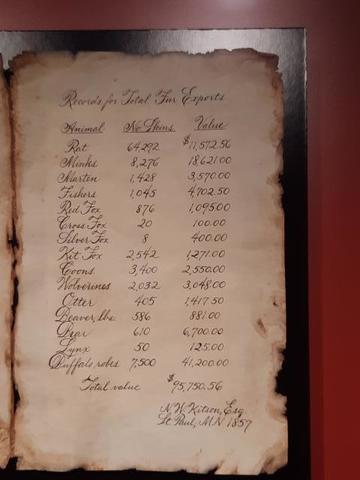 Records for Total Fur Exports
Animal No Skins Value
Rat 64,292 $11,572.56
Minks 8,276 18,621.00
Marten 1,428 3,570.00
Fishers 1,045 4,702.50
Red Fox 876 1,095.00
Cross Fox 20 100.00
Silver Fox 8 400.00
Kit Fox 2,542 1,271.00
Coons 3,400 2,550.00
Wolverines 2,032 3,048.00
Otter 405 1,417.50
Beaver, lbs. 586 881.00
Bear 610 6,700.00
Lynx 50 125.00
Buffalo robes 7,500 41,200.00
Total value $95,750.56
N.W. Kitson, Esq.
St. Paul, MN 1857